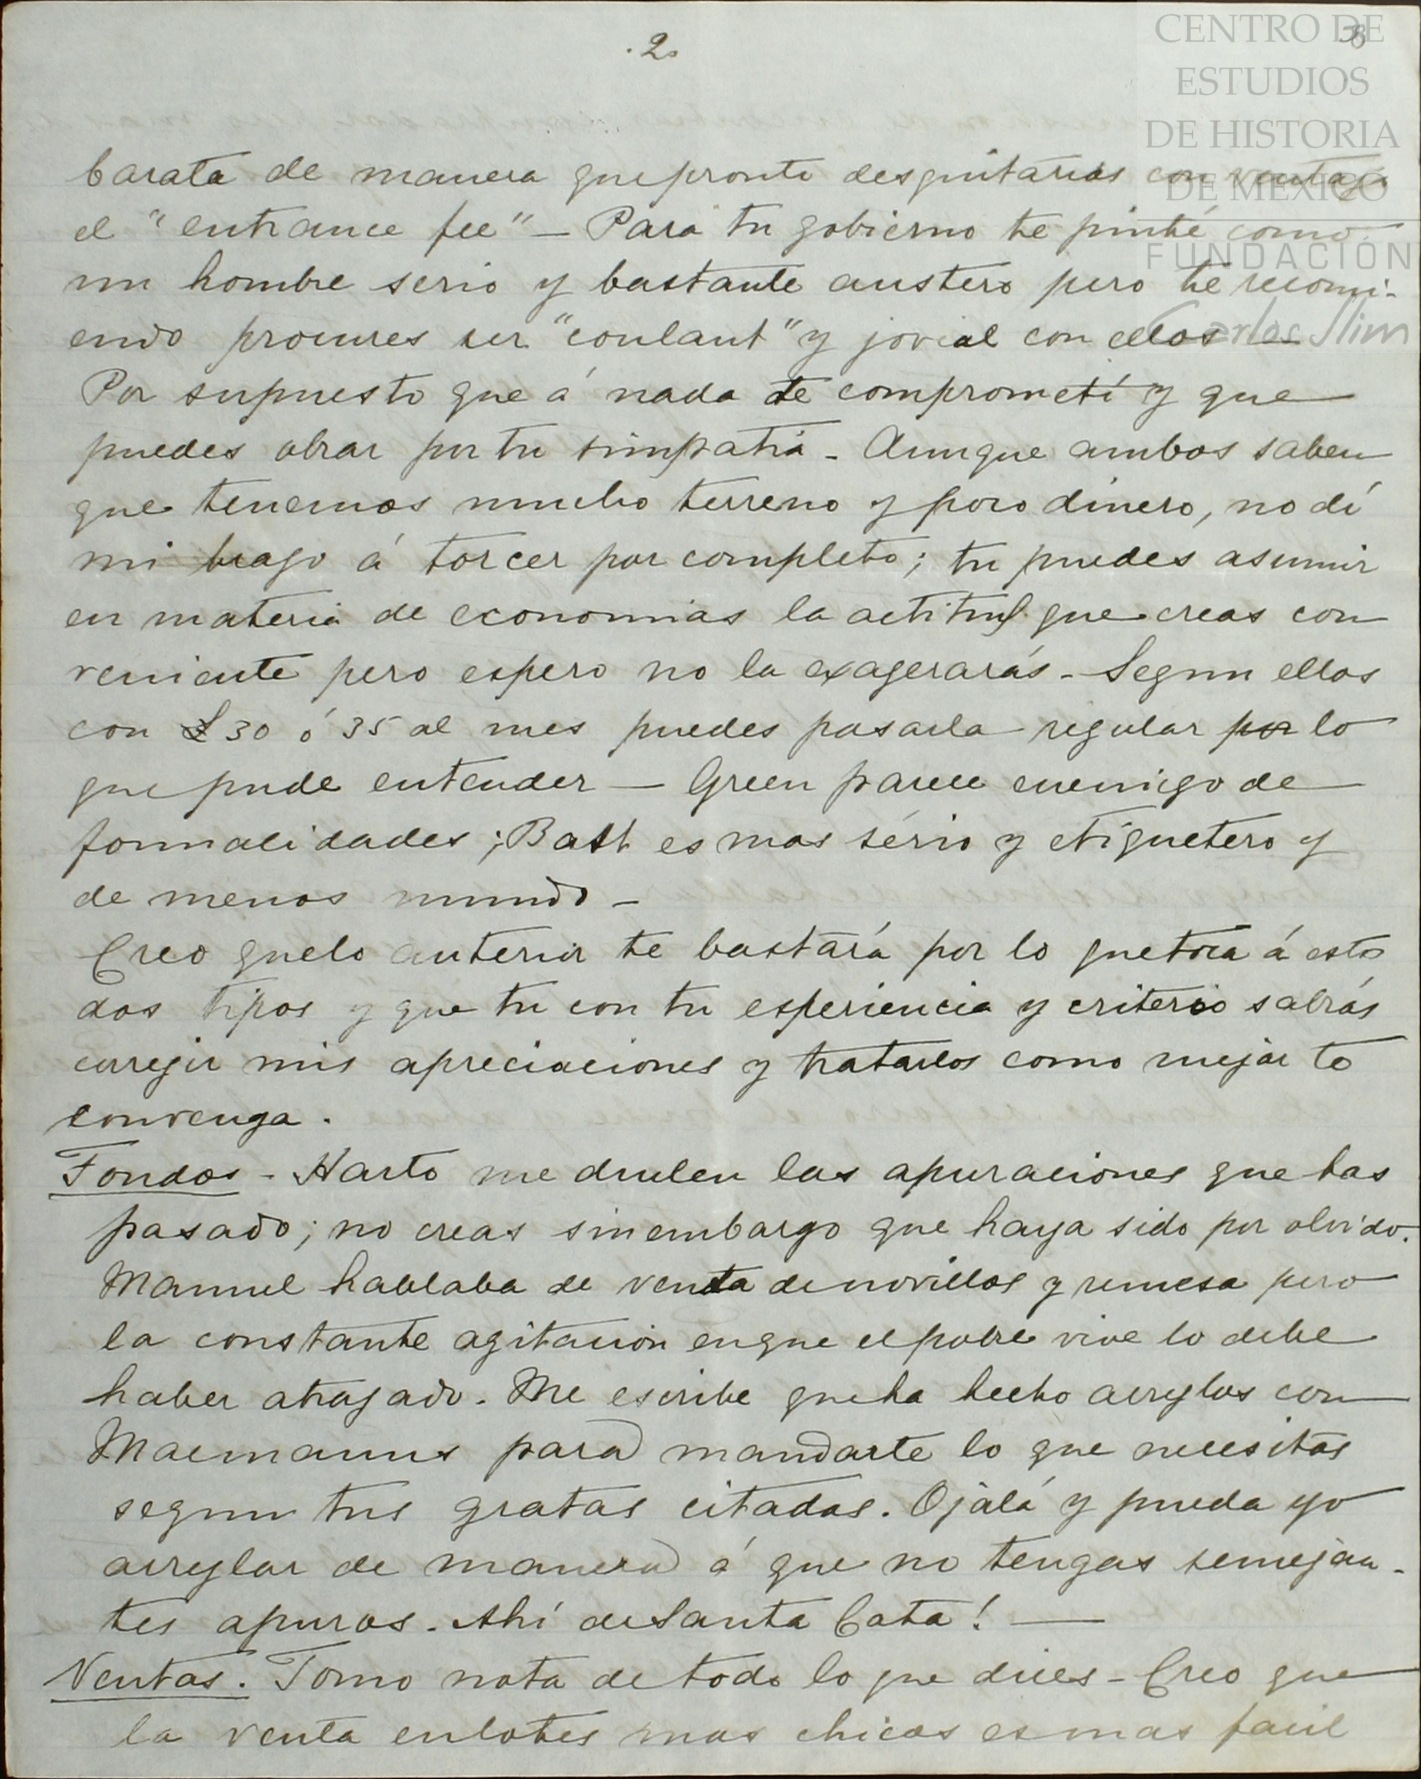 .2.
CENTRO DE
ESTUDIOS
DE HISTORIA
DE MEXICO
FUNDACIÓN
Carlos Slim
barata de manera que pronto desquitarias con ventaja
el "entrance fee" — Para tu gobierno te pinté como
un hombre serio y bastante austero pero te recomi-
endo procures ser "coulant" y jovial con ellos —
Por supuesto que á nada te comprometí y que
puedes obrar por tu simpatia - Aunque ambos saben
que tenemos mucho terreno y poco dinero, no dí
mi brazo á torcer por completo; tu puedes asumir
en materia de economias la actitud que creas con
veniente pero espero no la exagerarás - Segun ellos
con £ 30 ó 35 al mes puedes pasarla regular por lo
que pude entender — Green parece enemigo de
formalidades; Bast es mas sério y etiquetero y
de menos mundo -
Creo que lo anterior te bastará por lo que toca á esto
dos tipos y que tu con tu esperiencia y criterio sabrás
corregir mis apreciaciones y tratarlos como mejor te
convenga.
Fondos - Harto me duelen las apuraciones que has
pasado; no creas sin embargo que haya sido por olvido.
Manuel hablaba de venta de novillos y remesa pero
la constante agitacion en que el pobre vive lo debe
haber atrazado. Me escribe que ha hecho arreglos con
Macmanus para mandarte lo que necesitas
segun tus gratas citadas. Ojalá y pueda yo
arreglar de manera á que no tengas semejan-
tes apuros. Ahí de Santa Cata! —
Ventas. Tomo nota de todo lo que dices - Creo que
la venta en lotes mas chicos es mas facil